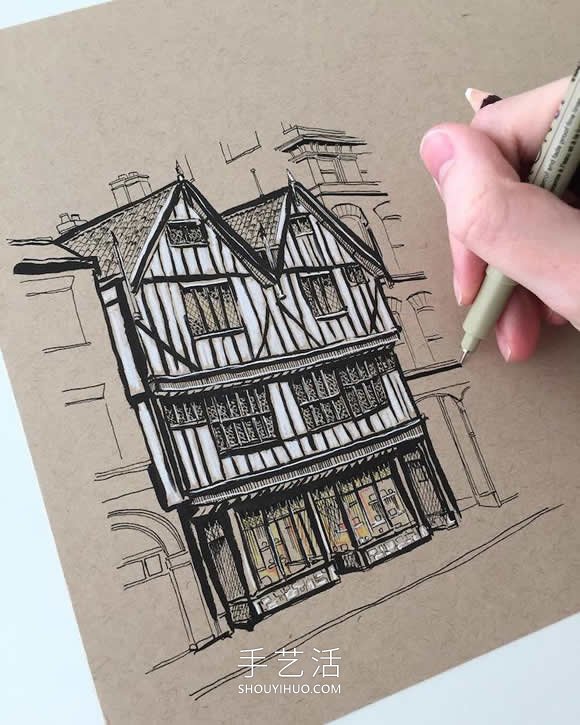 手艺活
SHOUYIHUO.COM